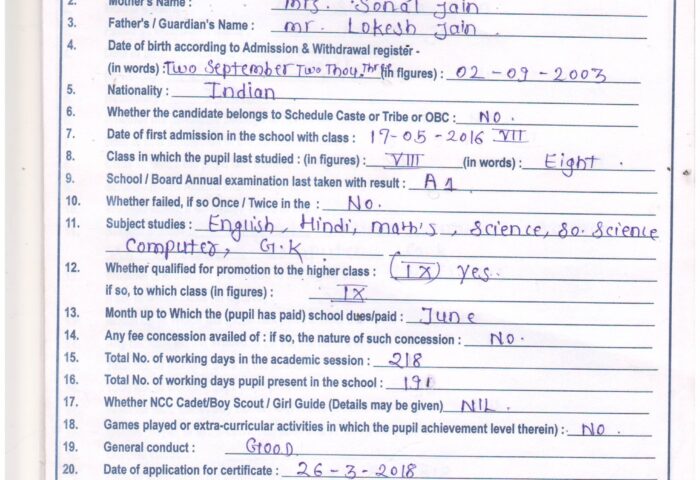 2. Mother's Name : Mrs. Sonal Jain
3. Father's / Guardian's Name : Mr. Lokesh Jain
4. Date of birth according to Admission & Withdrawal register -
(in words) : Two September Two Thou. Three (in figures) : 02-09-2003
5. Nationality : Indian
6. Whether the candidate belongs to Schedule Caste or Tribe or OBC : NO.
7. Date of first admission in the school with class : 17-05-2016 VII
8. Class in which the pupil last studied : (in figures) : VIII (in words) : Eight.
9. School / Board Annual examination last taken with result : A1
10. Whether failed, if so Once / Twice in the : No.
11. Subject studies : English, Hindi, math's, Science, So. Science
Computer, G.K
12. Whether qualified for promotion to the higher class : (IX) yes.
if so, to which class (in figures) : IX
13. Month up to Which the (pupil has paid) school dues/paid : June
14. Any fee concession availed of : if so, the nature of such concession : NO.
15. Total No. of working days in the academic session : 218
16. Total No. of working days pupil present in the school : 191
17. Whether NCC Cadet/Boy Scout / Girl Guide (Details may be given) NIL.
18. Games played or extra-curricular activities in which the pupil achievement level therein) : NO.
19. General conduct : GOOD
20. Date of application for certificate : 26-3-2018